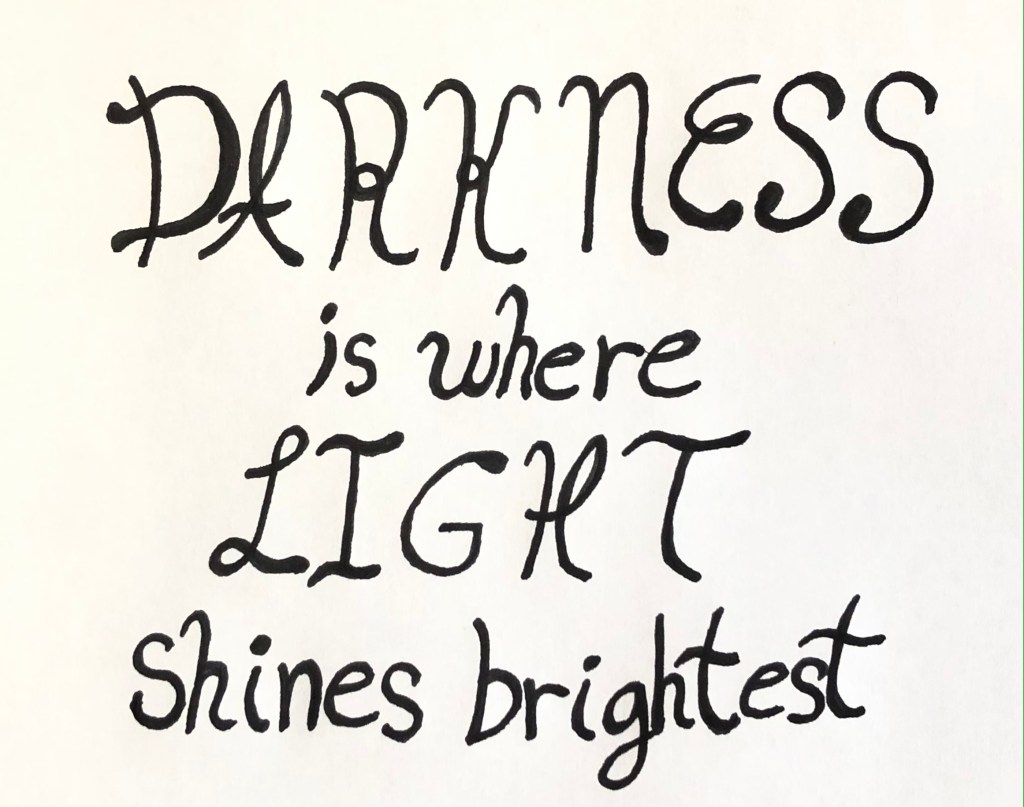 DARKNESS
is where
LIGHT
Shines brightest